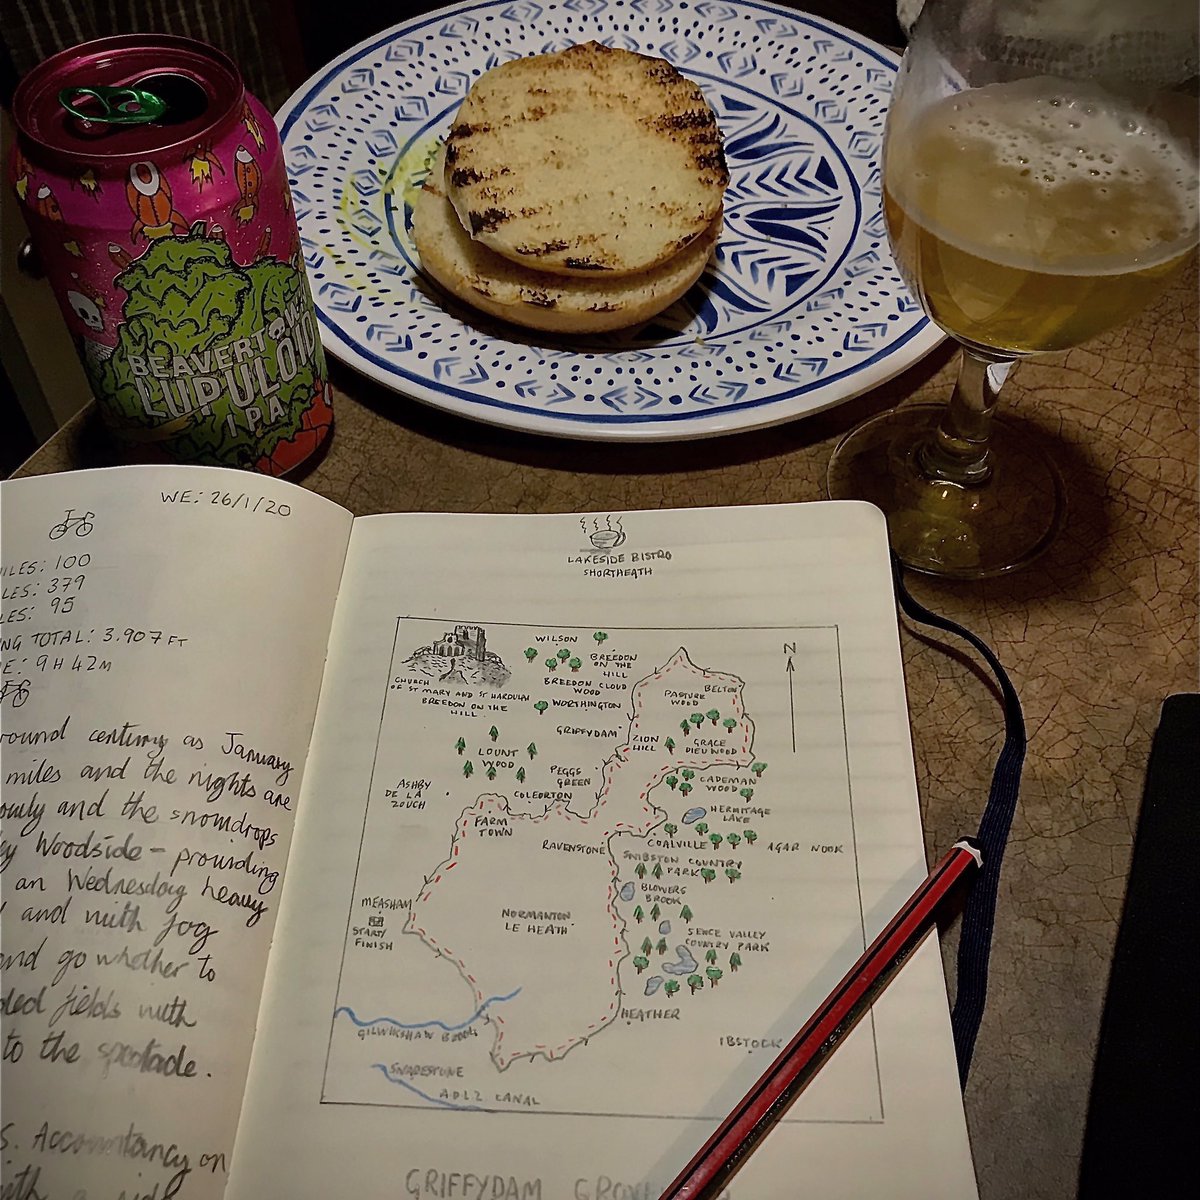 BEAVERTOWN
LUPULOID
IPA
WE: 26/1/20
MILES: 100
LES: 379
LES: 95
NG TOTAL: 3.907 FT
E: 9H 42M
round century as January
miles and the nights are
and the snowdrops
Woodside – providing
an Wednesday heavy
and with fog
and go whether to
ded fields with
to the spectacle.
S. Accountancy on
with a ride
LAKESIDE BISTRO
SHORTHEATH
WILSON
BREEDON
ON THE
HILL
BREEDON CLOUD
WOOD
CHURCH
OF ST MARY AND ST HARDULPH
BREEDON ON THE
HILL.
WORTHINGTON
GRIFFYDAM
N
BELTON
PASTURE
WOOD
ZION
HILL
GRACE
DIEU WOOD
LOUNT
WOOD
PEGGS
GREEN
COLEORTON
ASHBY
DE LA
ZOUCH
CADEMAN
WOOD
HERMITAGE
LAKE
FARM
TOWN
RAVENSTONE
COALVILLE
AGAR NOOK
SNIBSTON COUNTRY
PARK
BLOWERS
BROOK
MEASHAM
START/
FINISH
NORMANTON
LE HEATH
SENCE VALLEY
COUNTRY PARK
HEATHER
IBSTOCK
GILWISKAW BROOK
SNARESTONE
A.D.L.Z CANAL
GRIFFYDAM